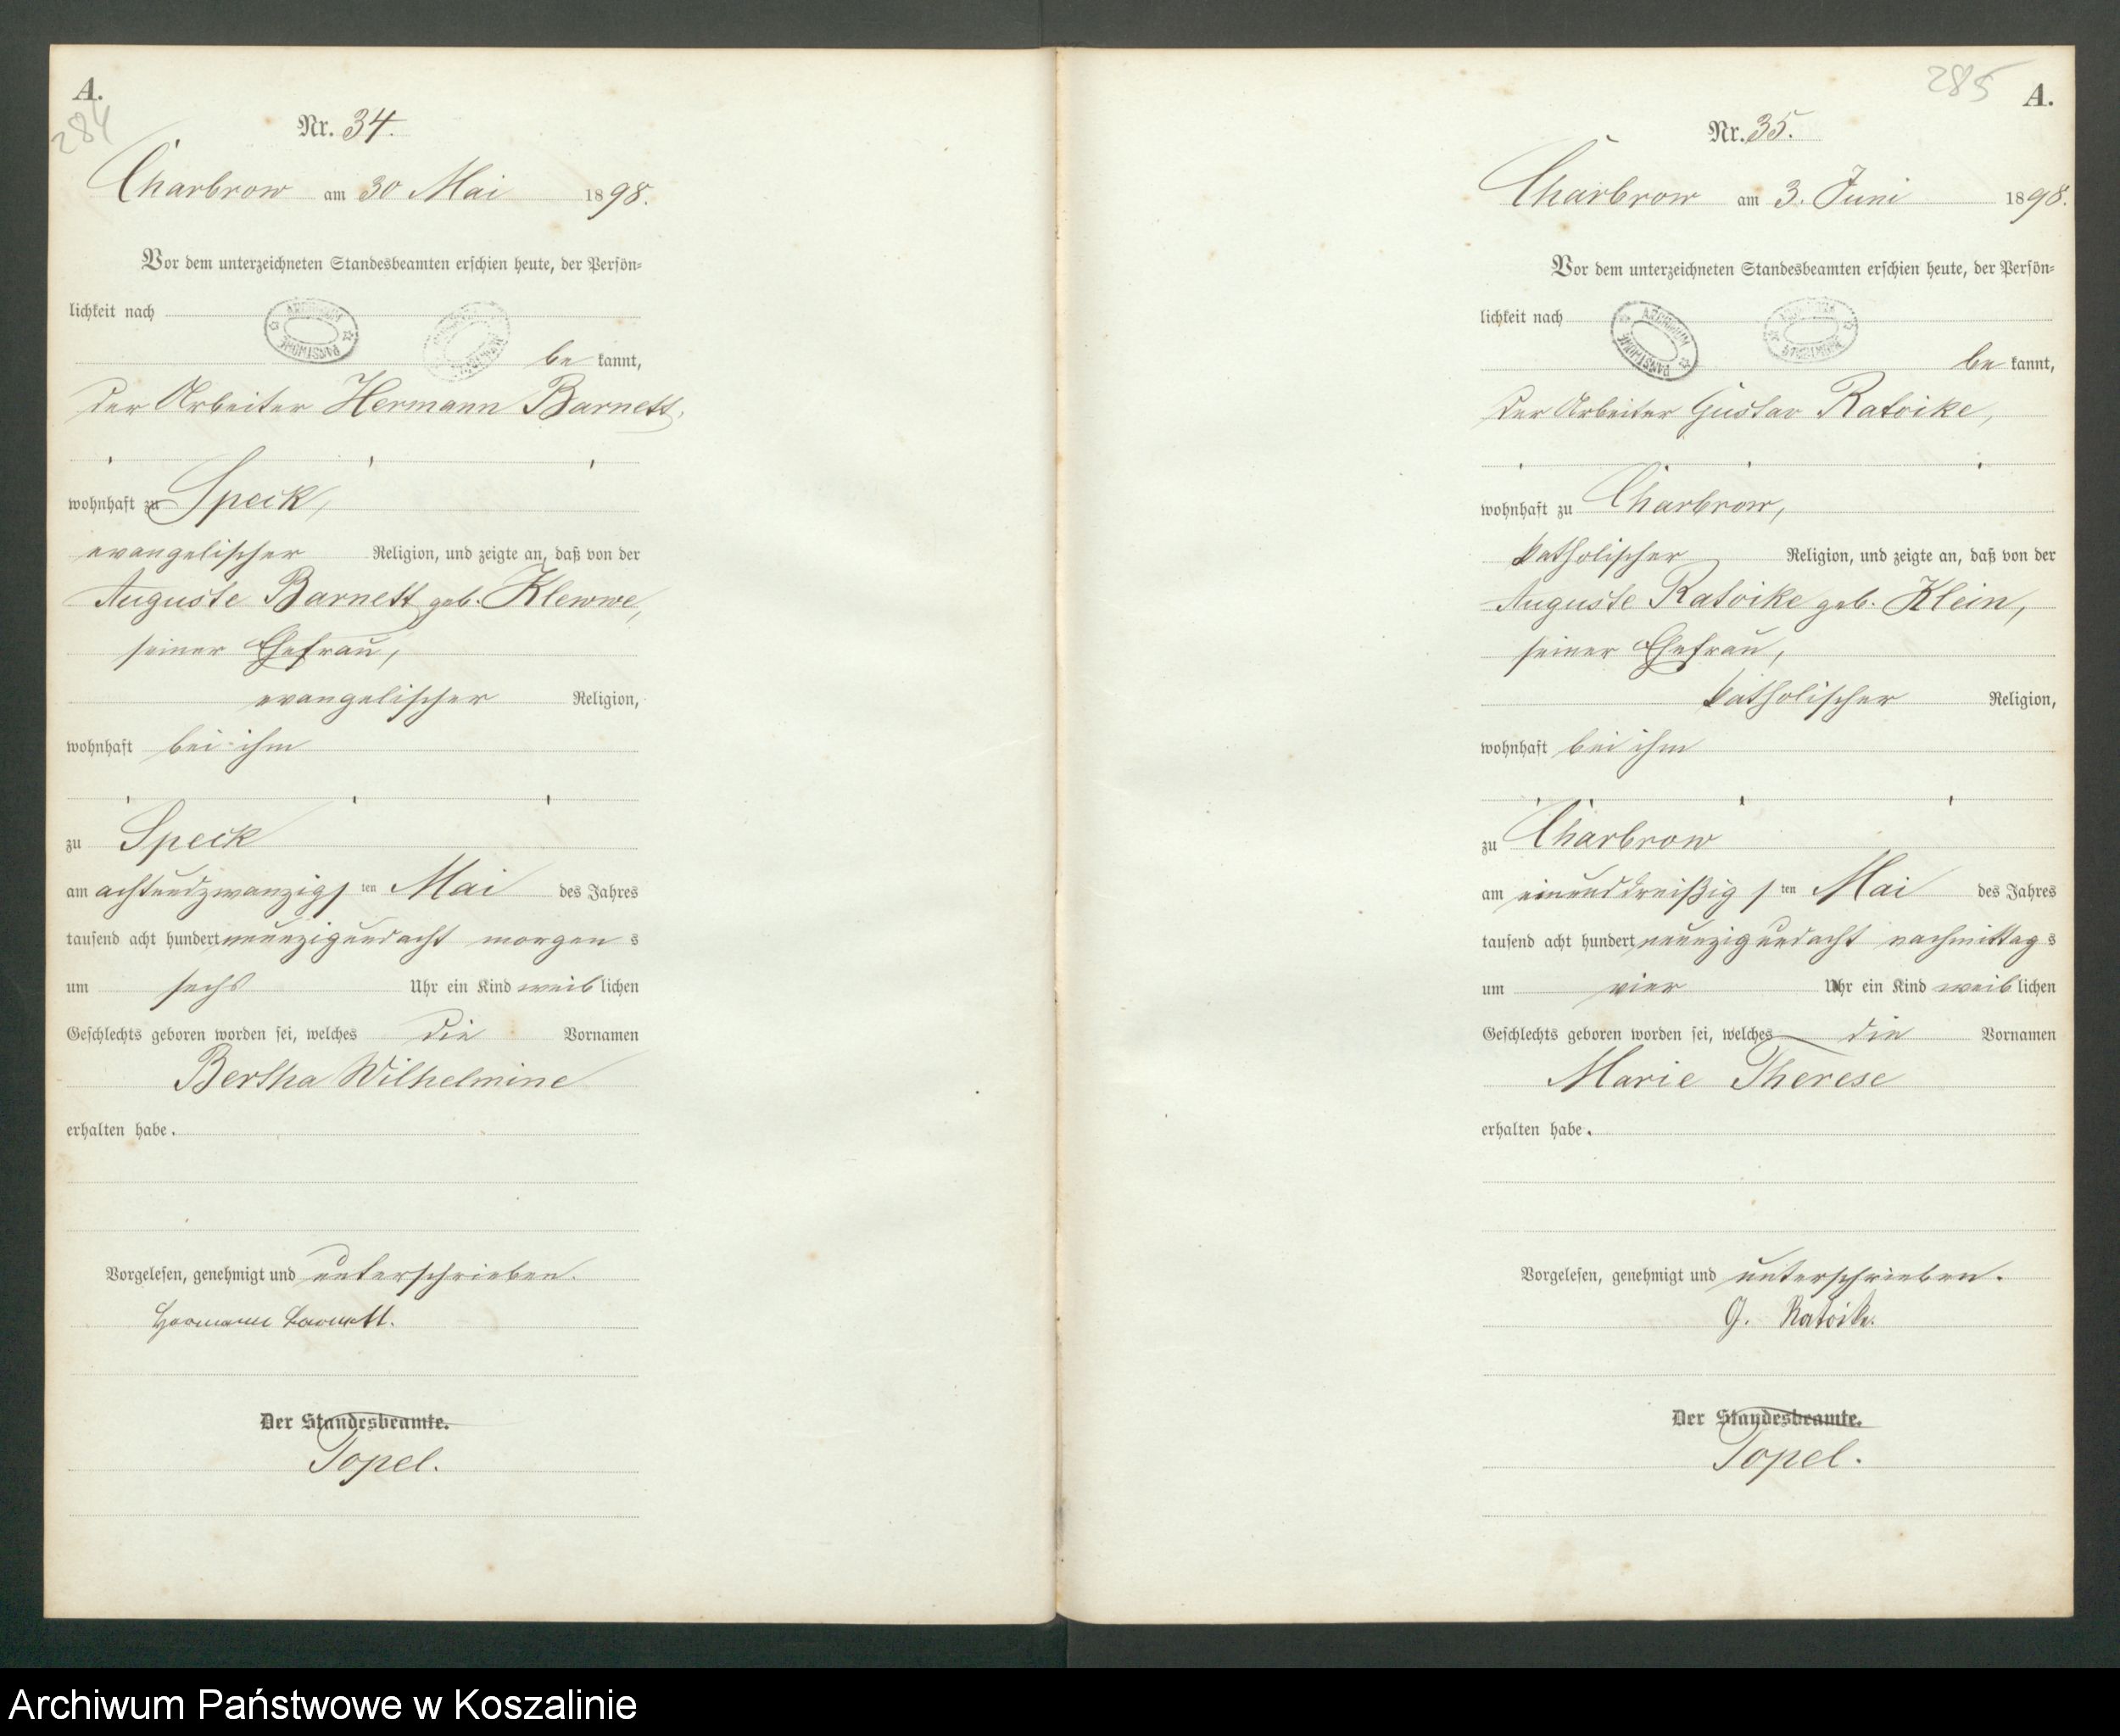 A.
284
Nr. 34.
Charbrow am 30 Mai 1898.
Vor dem unterzeichneten Standesbeamten erschien heute, der Persön-
lichkeit nach
ARCHIWUM PAŃSTWOWE
be kannt,
der Arbeiter Hermann Barnett,
wohnhaft zu Speck,
evangelischer Religion, und zeigte an, daß von der
Auguste Barnett geb. Klewwe,
seiner Ehefrau,
evangelischer Religion,
wohnhaft bei ihm
zu Speck
am achtundzwanzigsten Mai des Jahres
tausend acht hundert neunzigundacht morgens
um sechs Uhr ein Kind weiblichen
Geschlechts geboren worden sei, welches die Vornamen
Bertha Wilhelmine
erhalten habe.
Vorgelesen, genehmigt und unterschrieben.
Hermann Barnett.
Der Standesbeamte.
Topel.
285
A.
Nr. 35.
Charbrow am 3. Juni 1898.
Vor dem unterzeichneten Standesbeamten erschien heute, der Persön-
lichkeit nach
ARCHIWUM PAŃSTWOWE
be kannt,
der Arbeiter Gustav Ratoike,
wohnhaft zu Charbrow,
katholischer Religion, und zeigte an, daß von der
Auguste Ratoike geb. Klein,
seiner Ehefrau,
katholischer Religion,
wohnhaft bei ihm
zu Charbrow
am einunddreißigsten Mai des Jahres
tausend acht hundert neunzigundacht nachmittags
um vier Uhr ein Kind weiblichen
Geschlechts geboren worden sei, welches die Vornamen
Marie Therese
erhalten habe.
Vorgelesen, genehmigt und unterschrieben.
G. Ratoike.
Der Standesbeamte.
Topel.
Archiwum Państwowe w Koszalinie